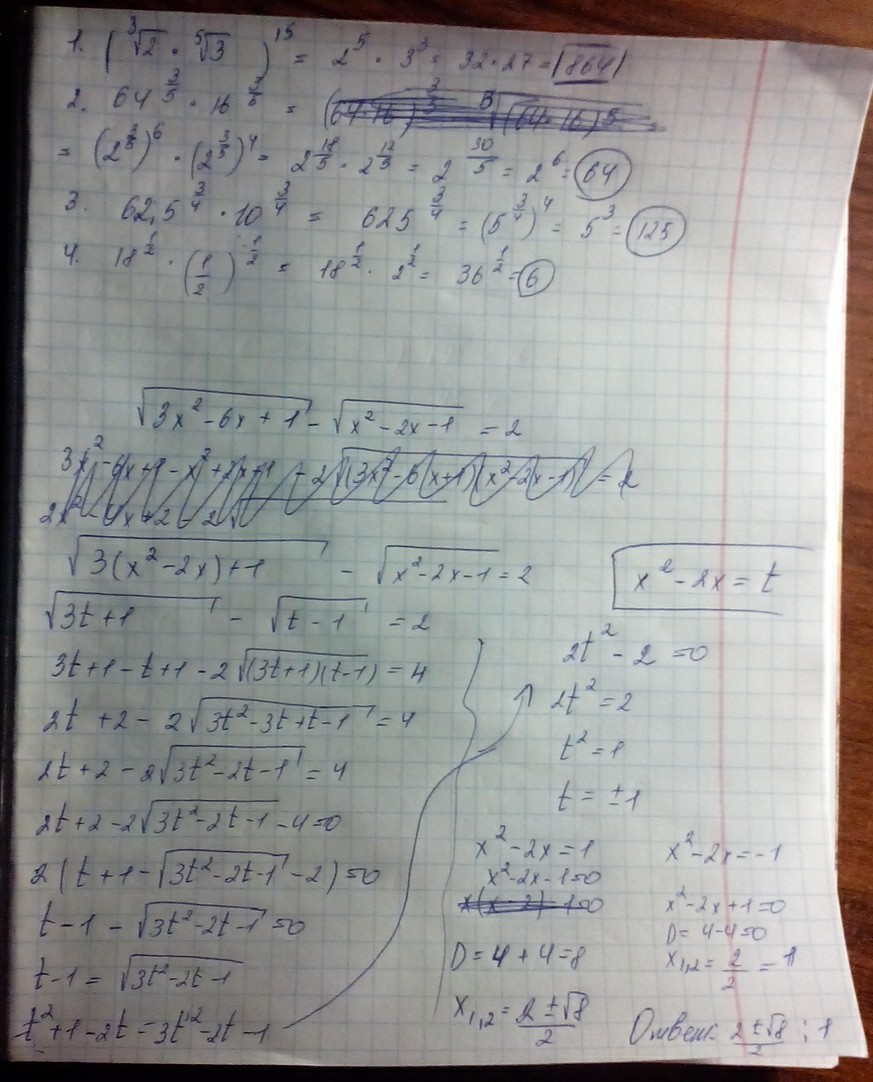 1. (∛2 · ⁵√3)^15 = 2^5 · 3^3 = 32 · 27 = 864
2. 64^(3/5) · 16^(3/5) =
= (2^(3/5))^6 · (2^(3/5))^4 = 2^(18/5) · 2^(12/5) = 2^(30/5) = 2^6 = 64
3. 62,5^(3/4) · 10^(3/4) = 625^(3/4) = (5^(3/4))^4 = 5^3 = 125
4. 18^(1/2) · (1/2)^(-1/2) = 18^(1/2) · 2^(1/2) = 36^(1/2) = 6
√(3x²-6x+1) - √(x²-2x-1) = 2
√(3(x²-2x)+1) - √(x²-2x-1) = 2
x²-2x = t
√(3t+1) - √(t-1) = 2
3t+1-t+1-2√((3t+1)(t-1)) = 4
2t+2-2√(3t²-3t+t-1) = 4
2t+2-2√(3t²-2t-1) = 4
2t+2-2√(3t²-2t-1)-4=0
2(t+1-√(3t²-2t-1)-2)=0
t-1-√(3t²-2t-1)=0
t-1=√(3t²-2t-1)
t²+1-2t=3t²-2t-1
2t²-2=0
2t²=2
t²=1
t=±1
x²-2x=1
x²-2x-1=0
D=4+4=8
x1,2=(2±√8)/2
x²-2x=-1
x²-2x+1=0
D=4-4=0
x1,2=2/2=1
Ответ: (2±√8)/2 ; 1